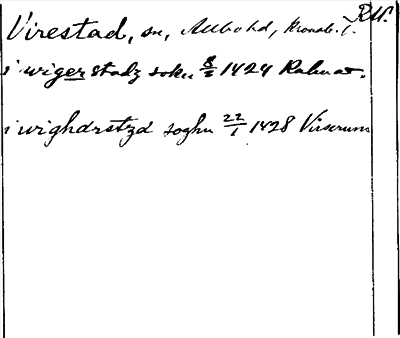 RU.
Virestad, sn, Allbo hd, Kronob. l.
i wigerstadz sokn 8/2 1424 Kalmar.
i wighdrstzd soghn 22/1 1428 Virserum